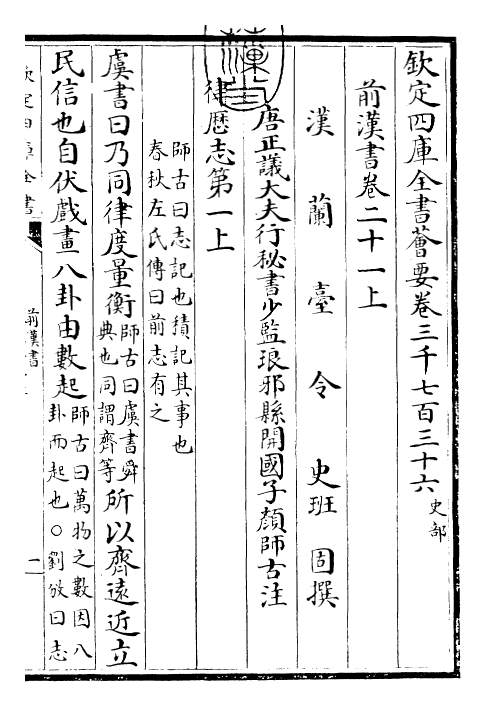 欽定四庫全書薈要卷三千七百三十六 史部
前漢書卷二十一上
漢蘭臺令史班固撰
唐正議大夫行秘書少監琅邪縣開國子顏師古注
律歷志第一上
師古曰志記也積記其事也
春秋左氏傳曰前志有之
虞書曰乃同律度量衡師古曰虞書舜典也同謂齊等所以齊遠近立
民信也自伏戲畫八卦由數起師古曰萬物之數因八卦而起也○劉攽曰志
欽定四庫全書
前漢書
一